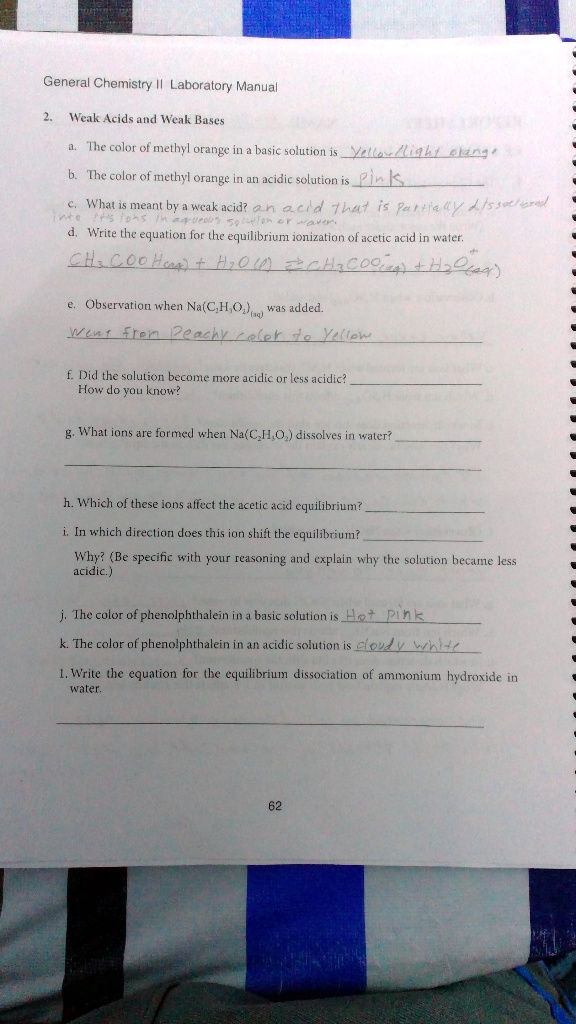 General Chemistry II Laboratory Manual
2. Weak Acids and Weak Bases
a. The color of methyl orange in a basic solution is Yellow/light orange
b. The color of methyl orange in an acidic solution is Pink
c. What is meant by a weak acid? an acid that is Partially dissociated
into its ions in aqueous solution or water.
d. Write the equation for the equilibrium ionization of acetic acid in water.
CH₃COOH(aq) + H₂O(l) ⇌ CH₃COO⁻(aq) + H₃O⁺(aq)
e. Observation when Na(C₂H₃O₂)(aq) was added.
Went from Peachy color to Yellow
f. Did the solution become more acidic or less acidic?
How do you know?
g. What ions are formed when Na(C₂H₃O₂) dissolves in water?
h. Which of these ions affect the acetic acid equilibrium?
i. In which direction does this ion shift the equilibrium?
Why? (Be specific with your reasoning and explain why the solution became less
acidic.)
j. The color of phenolphthalein in a basic solution is Hot pink
k. The color of phenolphthalein in an acidic solution is cloudy white
l. Write the equation for the equilibrium dissociation of ammonium hydroxide in
water.
62